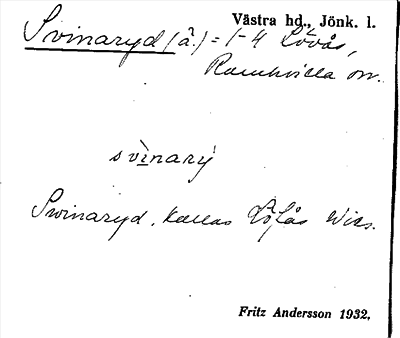 Västra hd., Jönk. l.
Svinaryd (å.) = 1-4 Lövås,
Ramkvilla sn.
svìnarý
Swinaryd, kallas Löfås Wies.
Fritz Andersson 1932.